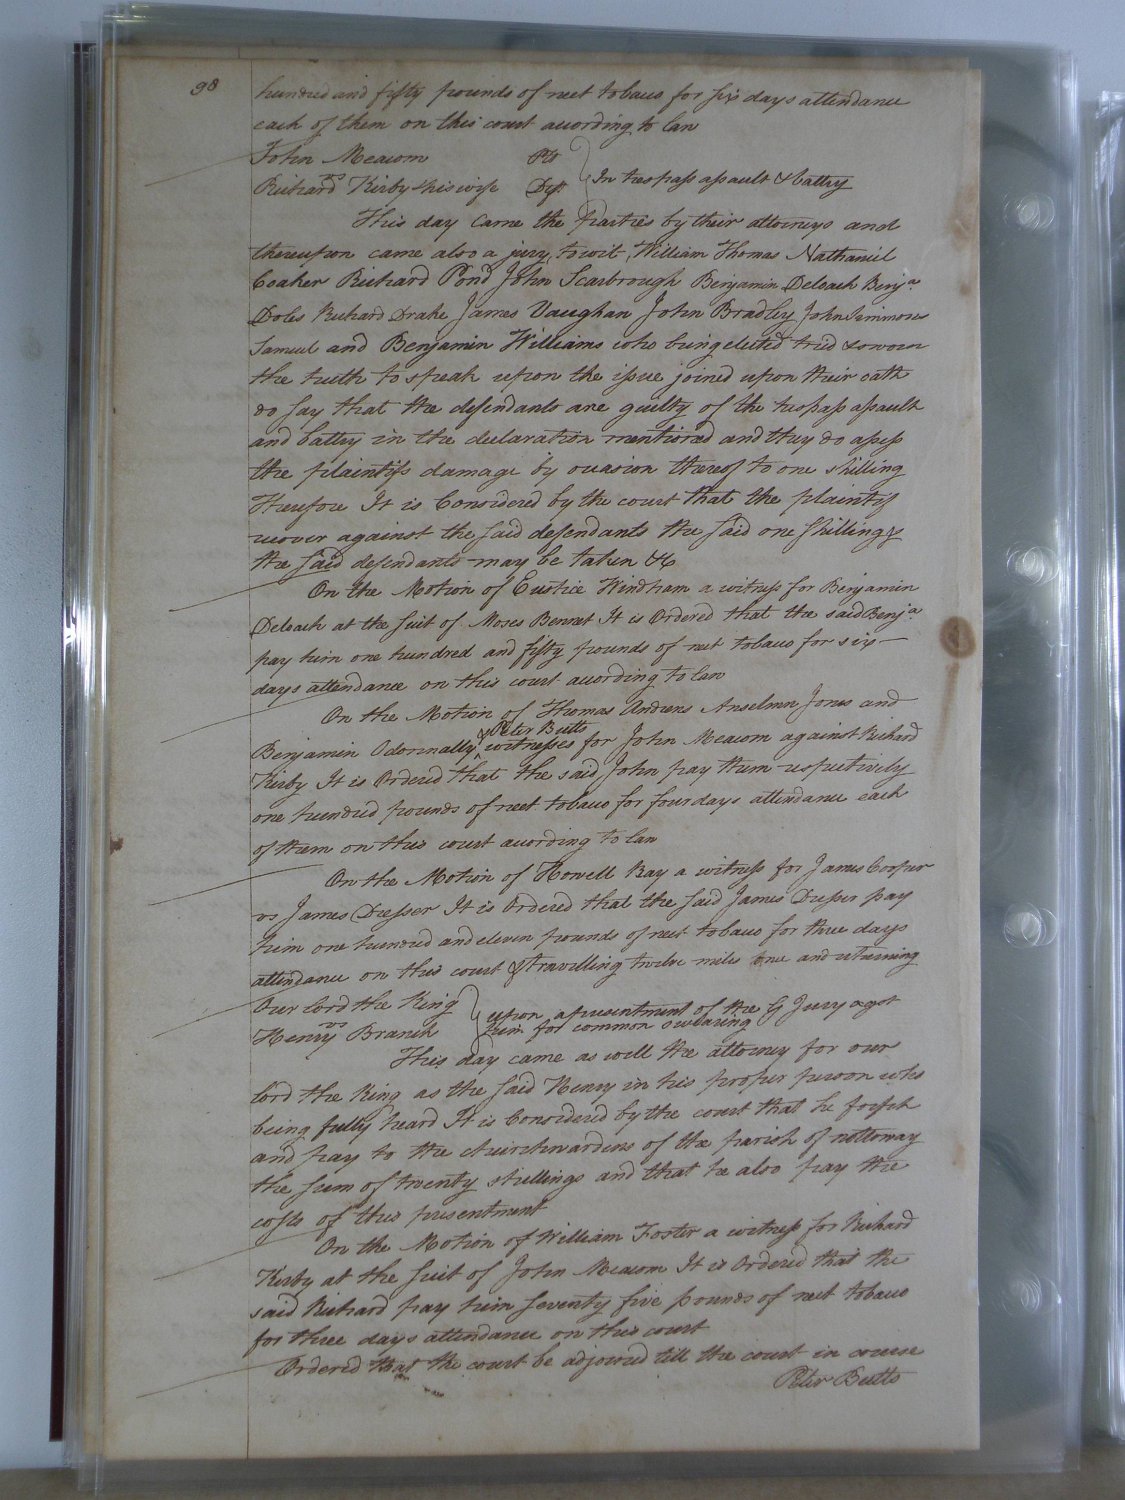 98
hundred and fifty pounds of neet tobaco for six days attendance
each of them on this court according to law
John Meacom Plt
vs
Richard Kirby & his wife Def In trespass assault & battry
This day came the parties by their attorneys and
thereupon came also a jury, to wit, William Thomas Nathaniel
Coaker Richard Pond John Scarbrough Benjamin Deloach Benja
Doles Richard Drake James Vaughan John Bradley John Simmons
Samuel and Benjamin Williams who being elected tried & sworn
the truth to speak upon the issue joined upon their oath
do say that the defendants are guilty of the trespass assault
and battry in the declaration mentioned and they do assess
the plaintifs damage by occasion thereof to one shilling
Therefore It is Considered by the court that the plaintif
recover against the said defendants the said one shilling &
the said defendants may be taken &c
On the Motion of Eustice Windham a witness for Benjamin
Deloach at the suit of Moses Bennet It is Ordered that the said Benja
pay him one hundred and fifty pounds of neet tobaco for six
days attendance on this court according to law
On the Motion of Thomas Andrews Anselmn Jones and
& Peter Butts
Benjamin Odonnally witnesses for John Meacom against Richard
Kirby It is Ordered that the said John pay them respectively
one hundred pounds of neet tobaco for four days attendance each
of them on this court according to law
On the Motion of Howell Ray a witness for James Cooper
vs James Dresser It is Ordered that the said James Dresser pay
him one hundred and eleven pounds of neet tobaco for three days
attendance on this court & travilling twelve miles one and returning
Our lord the King
vs
Henry Branch
upon a presentment of the G Jury agst
him for common swearing
This day came as well the attorney for our
lord the King as the said Henry in his proper person who
being fully heard It is Considered by the court that he forfeit
and pay to the churchwardens of the parish of nottoway
the sum of twenty shillings and that he also pay the
costs of this presentment
On the Motion of William Foster a witness for Richard
Kirby at the suit of John Meacom It is Ordered that the
said Richard pay him seventy five pounds of neet tobaco
for three days attendance on this court
Ordered that the court be adjorned till the court in course
Peter Butts